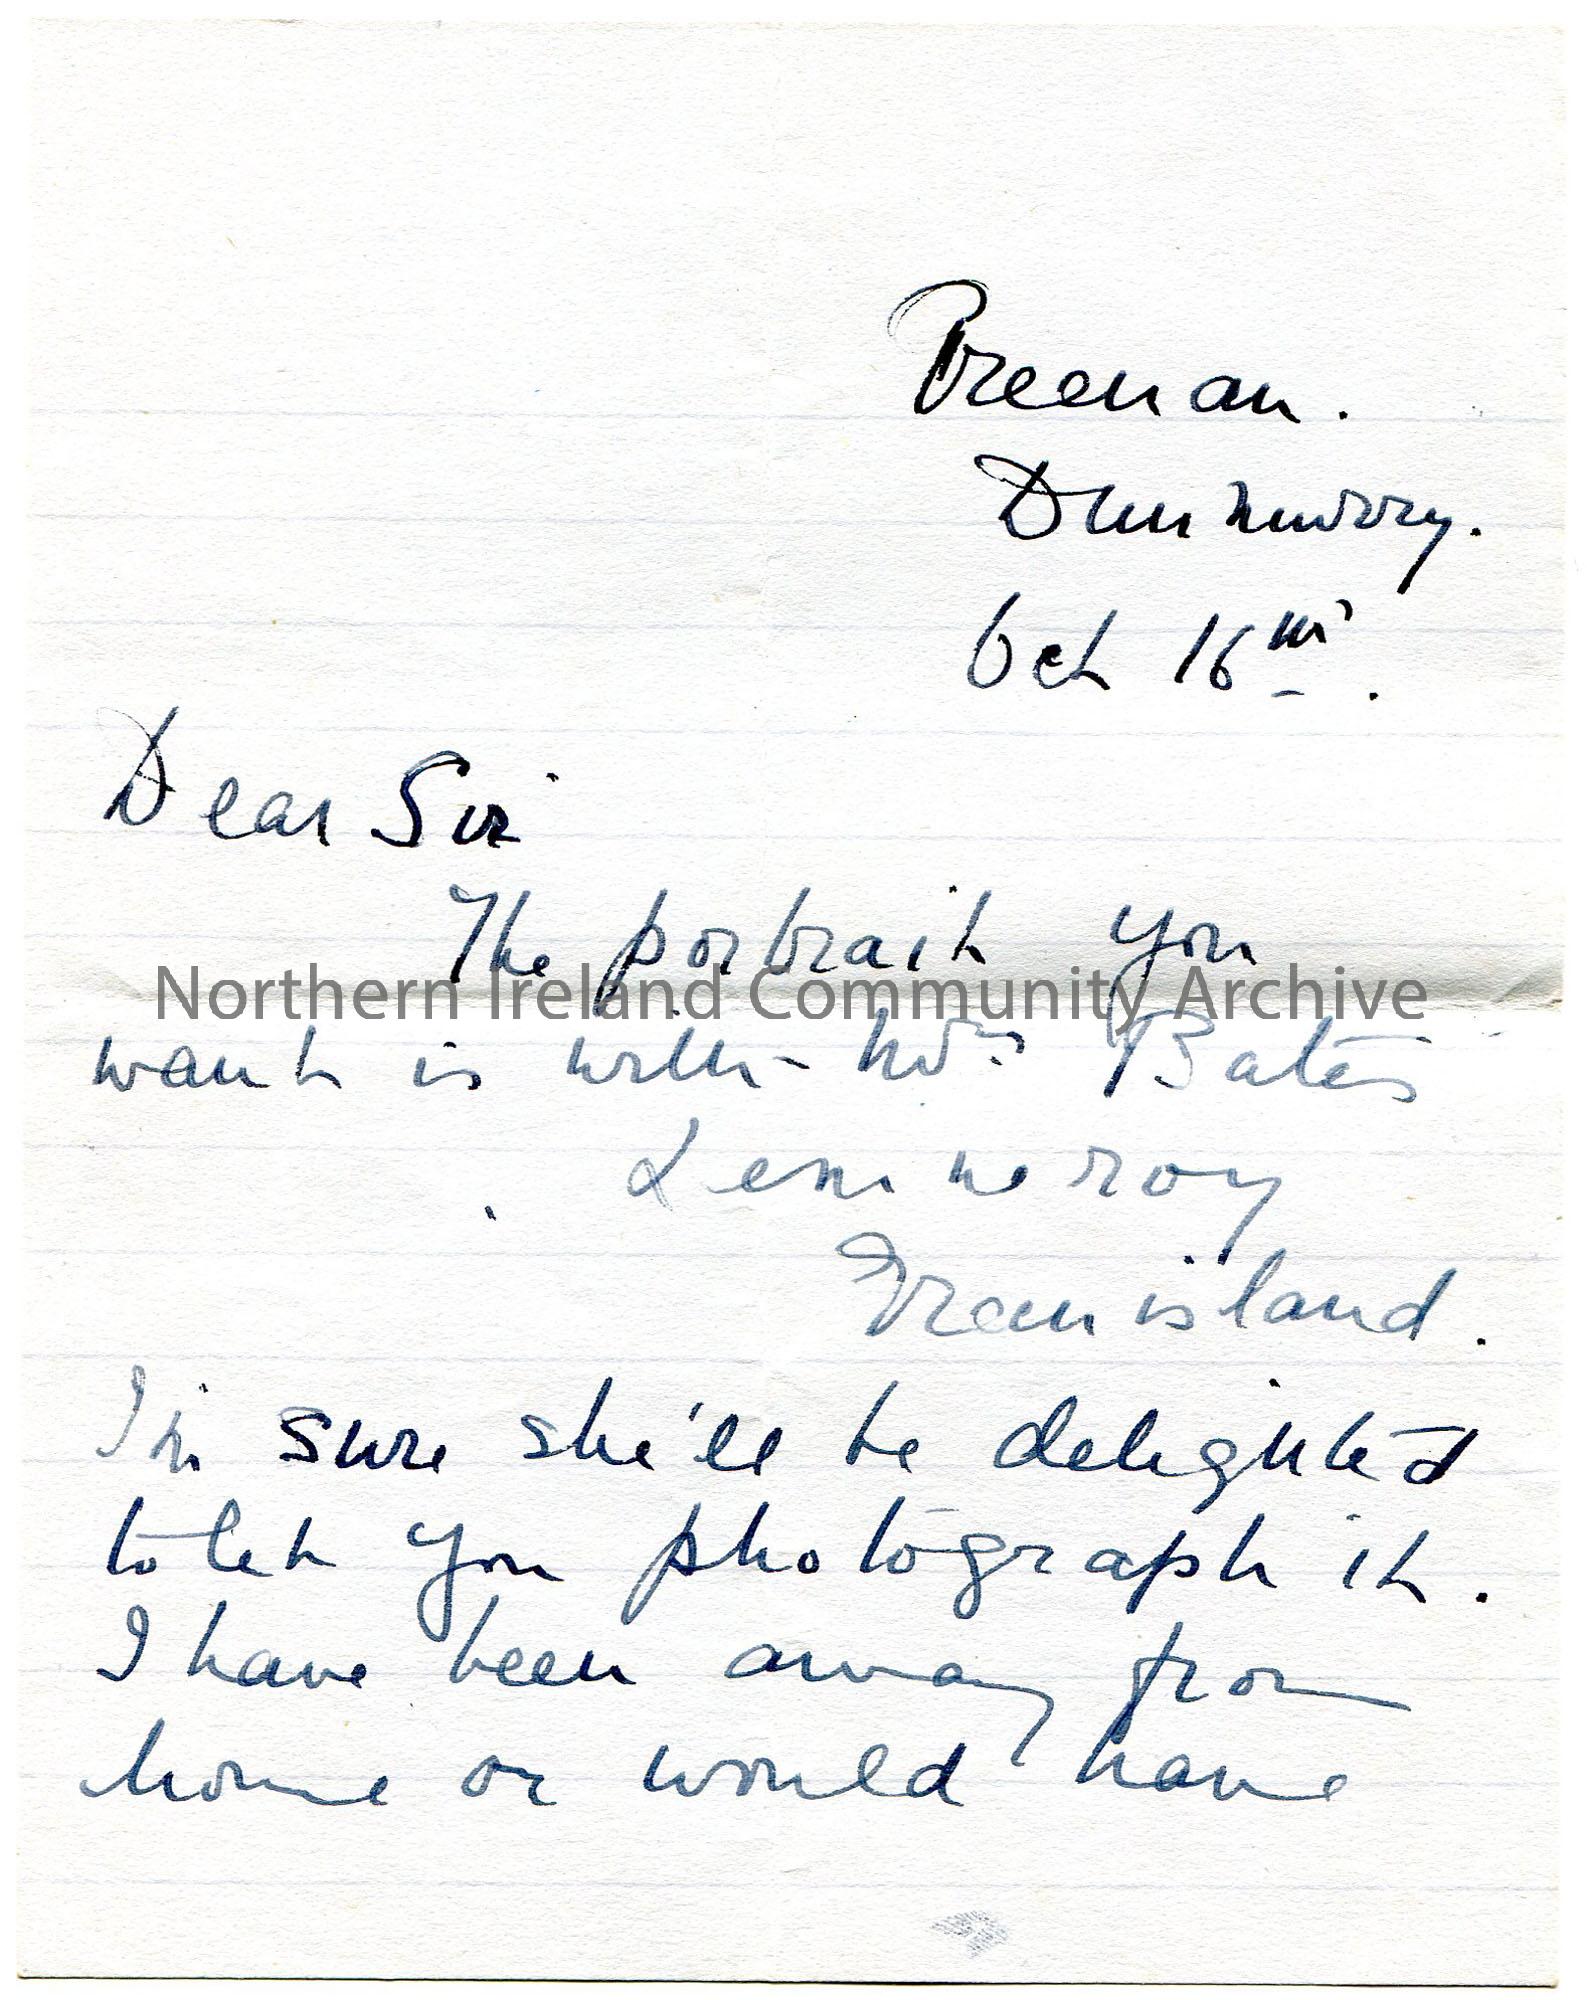 Preenan.
Dunmurry.
Oct 16th.
Dear Sir
The portrait you
Northern Ireland Community Archive
want is with Mrs Bates
Greenisland.
I'm sure she'll be delighted
to let you photograph it.
I have been away from
home or would have